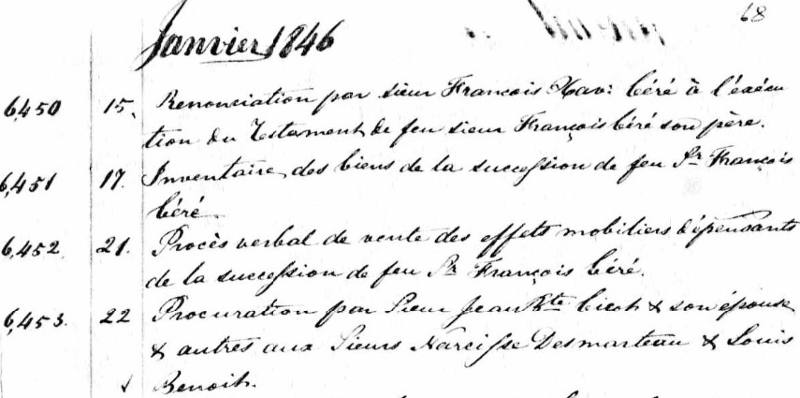 68
Janvier 1846
6,450 15. Renonciation par sieur François Xav: Céré à l'exécu
tion du Testament de feu sieur François Céré son père.
6,451 17. Inventaire des biens de la succession de feu Sr. François
Céré
6,452 21. Procès verbal de vente des effets mobiliers dépensants
de la succession de feu Sr. François Céré.
6,453. 22 Procuration par Sieur Jean Bte Cicot & son épouse
& autres aux Sieurs Narcisse Desmarteau & Louis
Benoit.